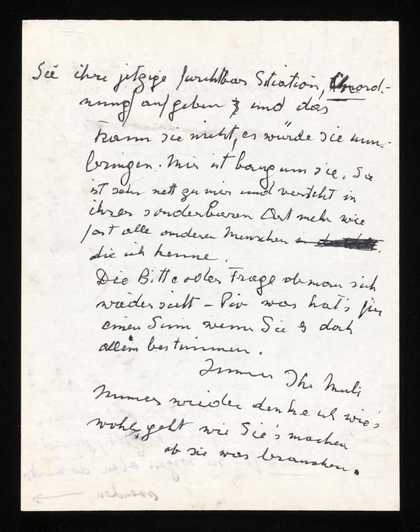 Sie ihre jetzige furchtbar Situation, Unord-
nung aufgeben & und das
kann sie nicht, es würde sie um-
bringen. Mir ist bang um sie. Sie
ist sehr nett zu mir und versteht in
ihrer sonderbaren Art mehr wie
fast alle anderen Menschen
die ich kenne.
Die Bitte oder Frage ob man sich
wieder sieht – was hat's für
einen Sinn wenn Sie es doch
allein bestimmen.
Immer Ihr
Immer wieder denke ich wie's
wohl geht wie Sie's machen
ob sie was brauchen.